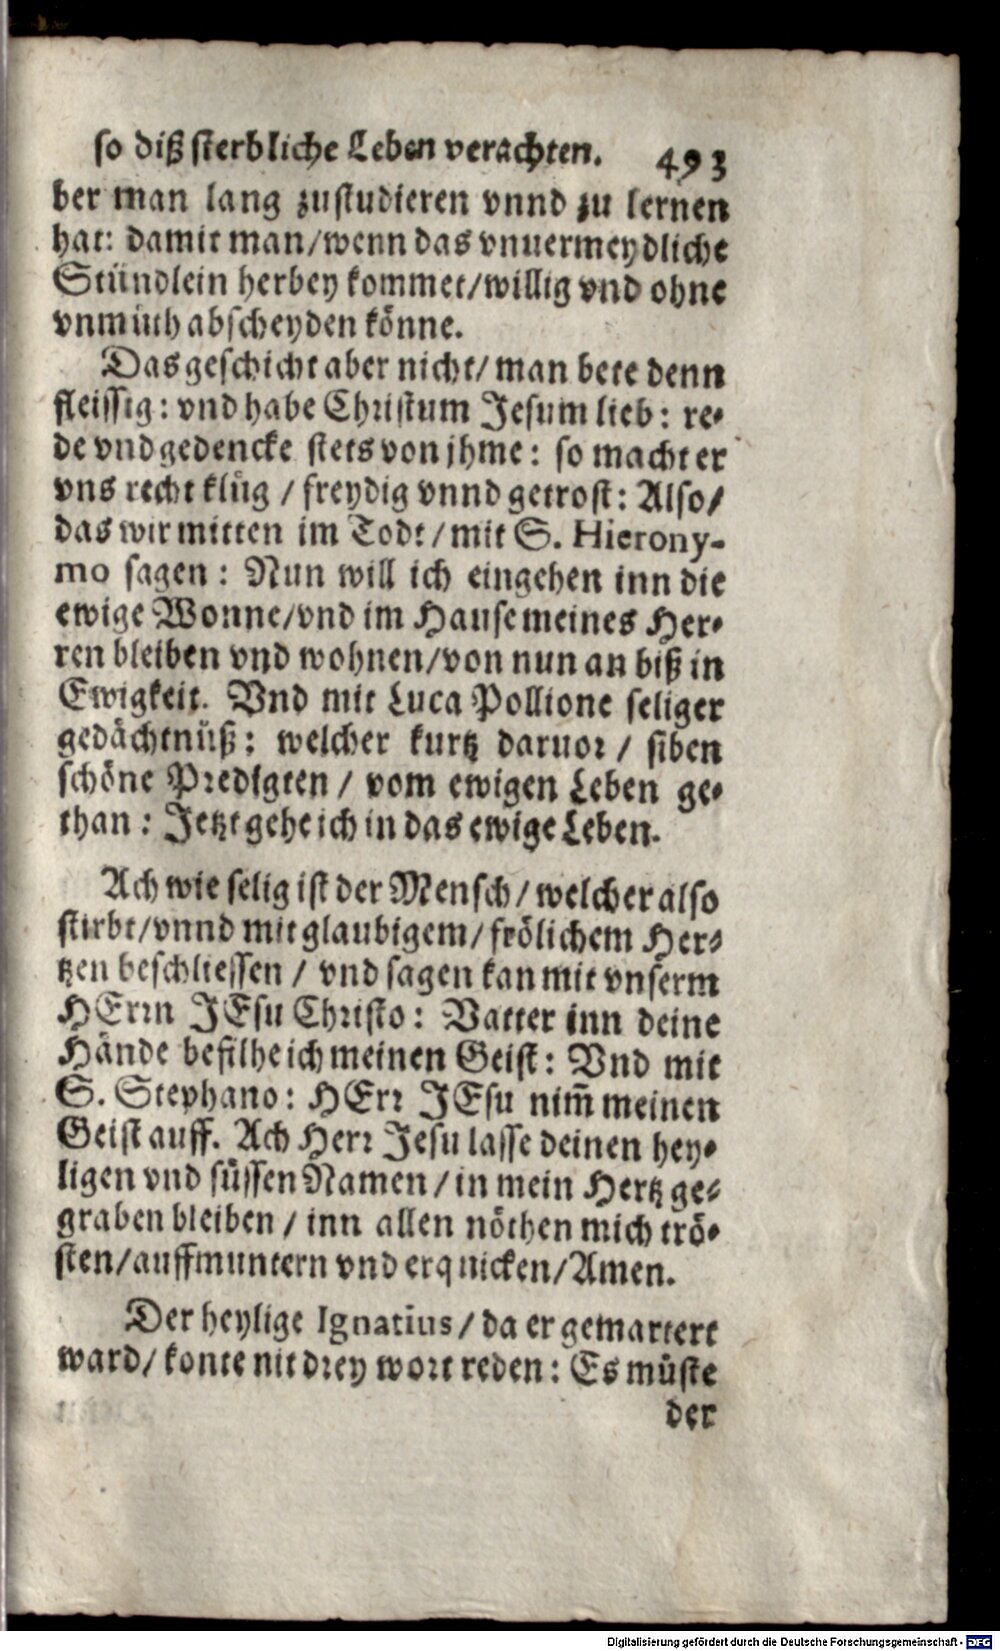 so diß sterbliche Leben verachten. 493
ber man lang zustudieren vnnd zu lernen
hat: damit man/wenn das vnuermeydliche
Stündlein herbey kommet/willig vnd ohne
vnmuth abscheyden könne.
Das geschicht aber nicht/ man bete denn
fleissig: vnd habe Christum Jesum lieb: re-
de vnd gedencke stets von jhme: so macht er
vns recht klug / freydig vnnd getrost: Also/
das wir mitten im Todt/mit S. Hierony-
mo sagen: Nun will ich eingehen inn die
ewige Wonne/vnd im Hause meines Her-
ren bleiben vnd wohnen/von nun an biß in
Ewigkeit. Vnd mit Luca Pollione seliger
gedächtnüß: welcher kurtz daruor / siben
schöne Predigten / vom ewigen Leben ge-
than: Jetzt gehe ich in das ewige Leben.
Ach wie selig ist der Mensch/welcher also
stirbt/vnnd mit glaubigem/frölichem Her-
tzen beschliessen / vnd sagen kan mit vnserm
HErrn JEsu Christo: Vatter inn deine
Hände befilhe ich meinen Geist: Vnd mit
S. Stephano: HErr JEsu nim̃ meinen
Geist auff. Ach Herr Jesu lasse deinen hey-
ligen vnd süssen Namen/in mein Hertz ge-
graben bleiben / inn allen nöthen mich trö-
sten/auffmuntern vnd erquicken/Amen.
Der heylige Ignatius/da er gemartert
ward/konte nit drey wort reden: Es müste
der
Digitalisierung gefördert durch die Deutsche Forschungsgemeinschaft - DFG